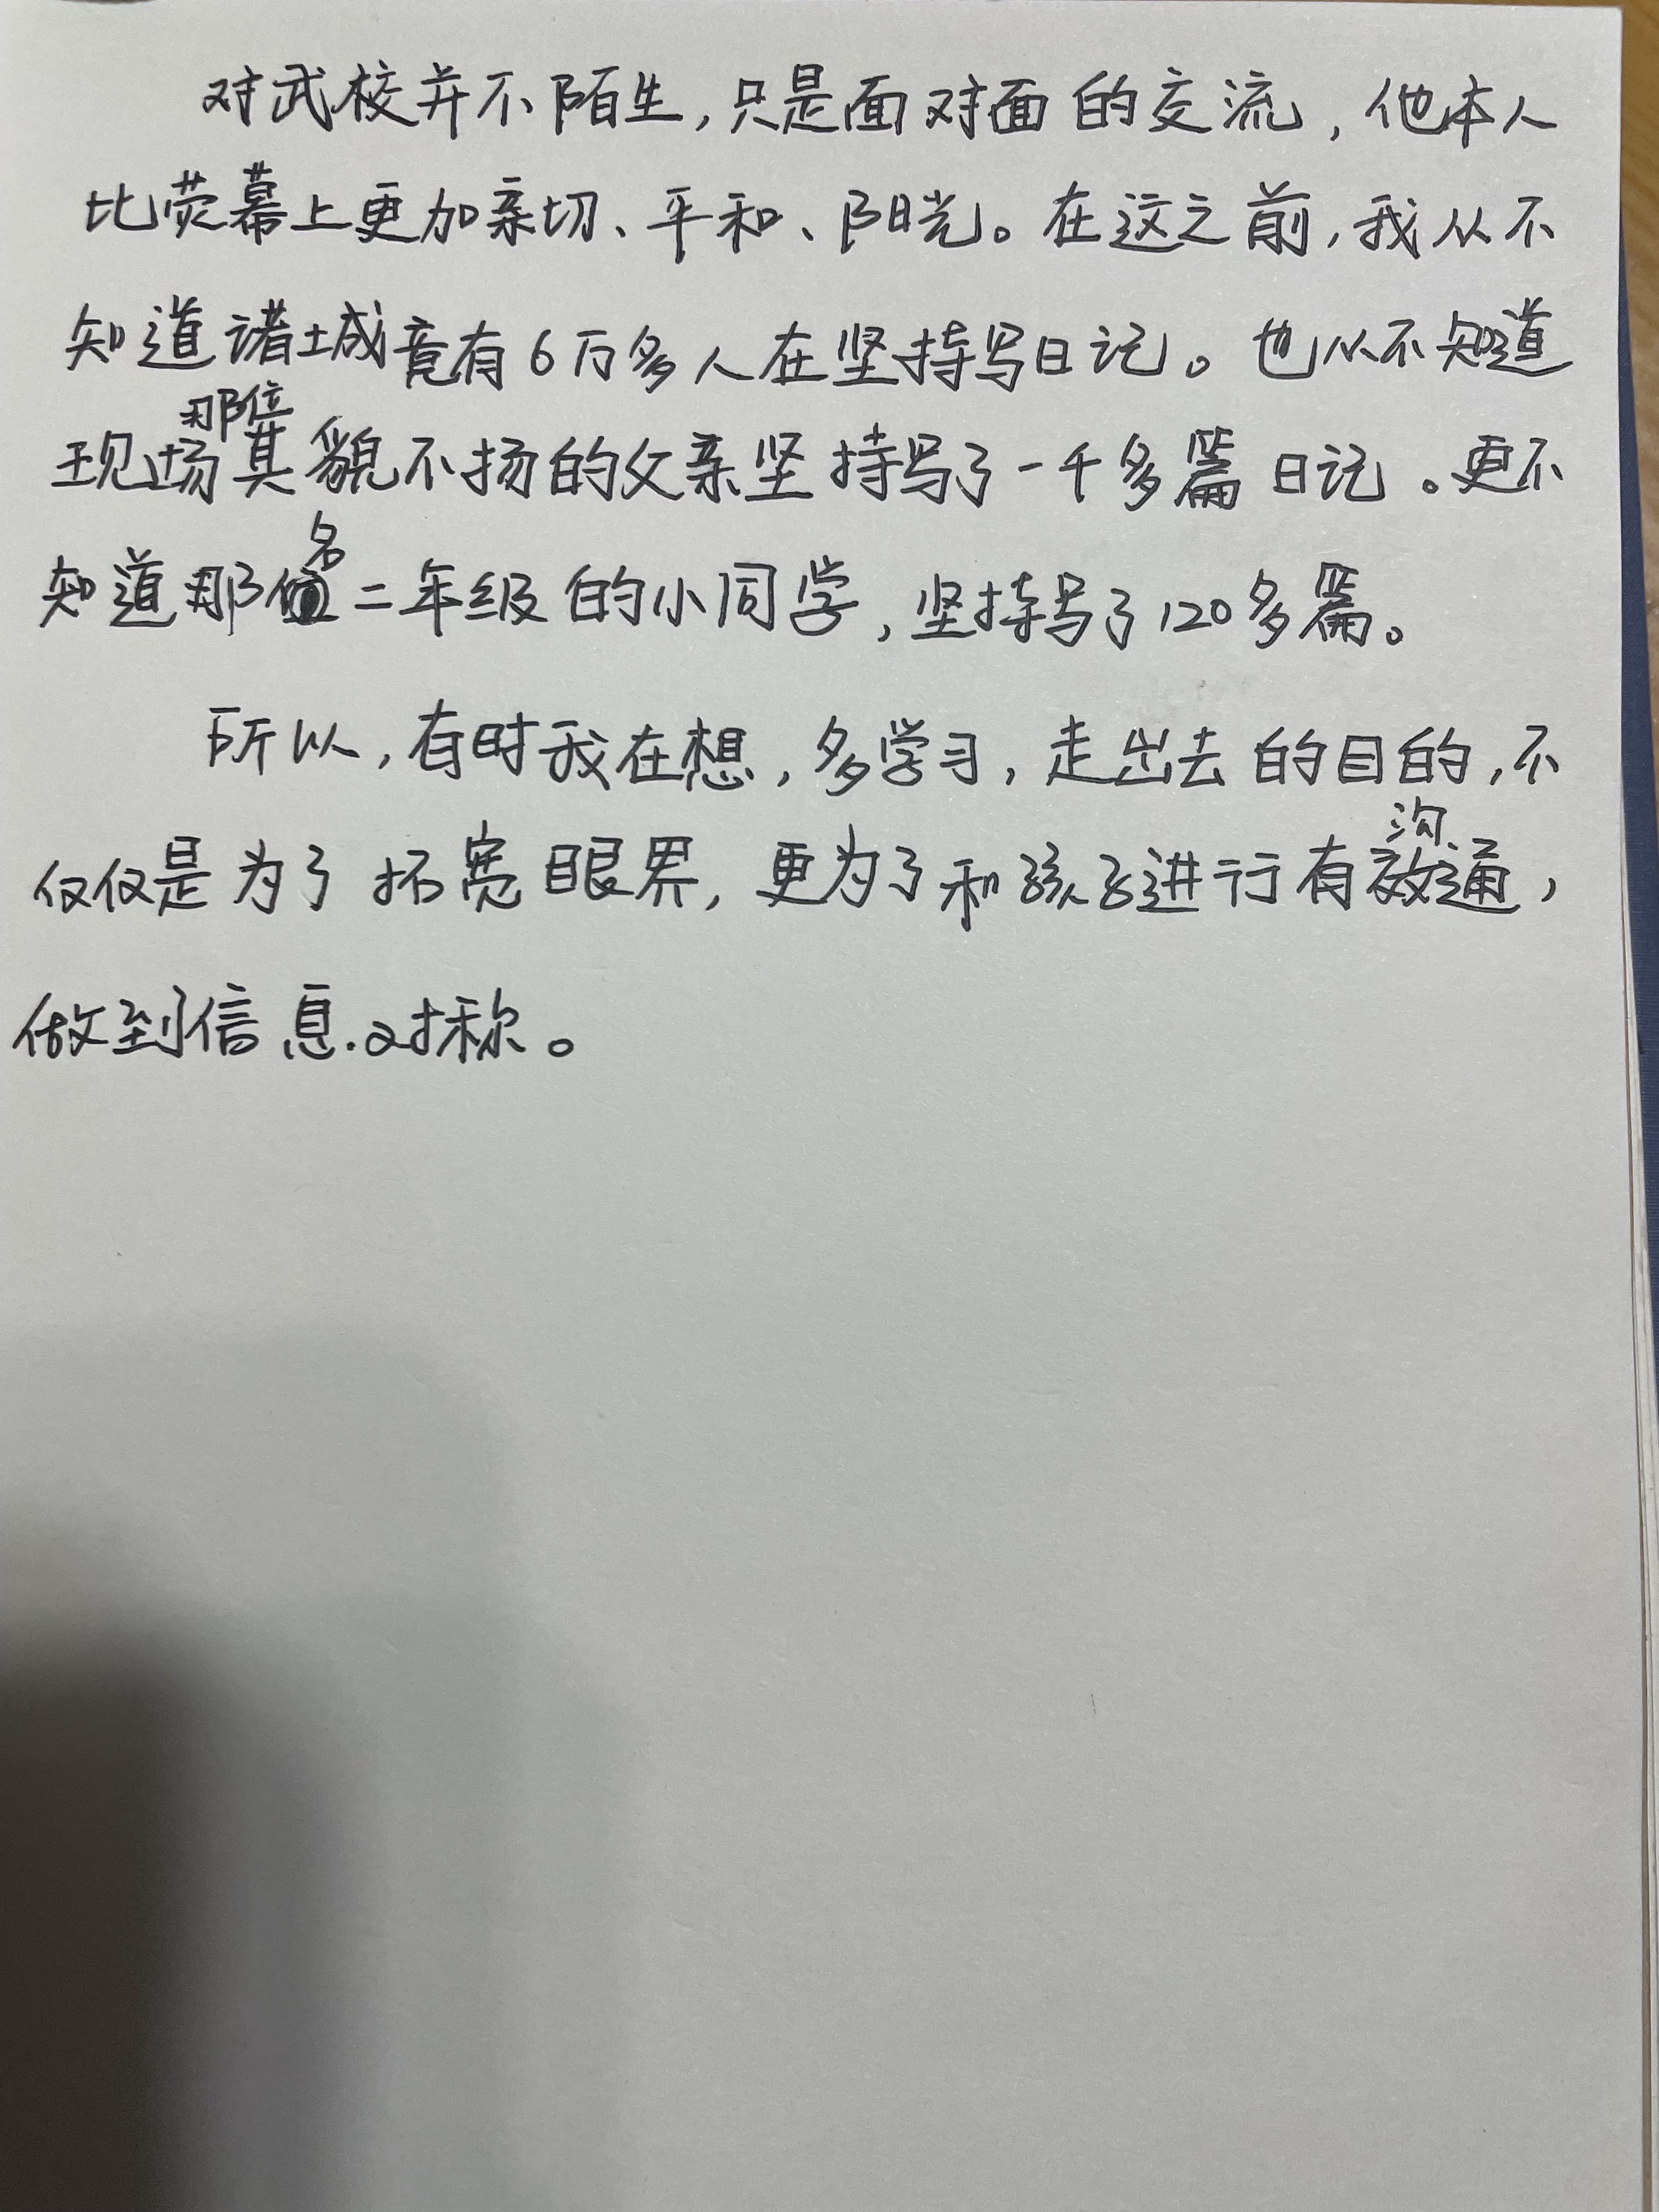 对武校并不陌生,只是面对面的交流,他本人
比荧幕上更加亲切、平和、阳光。在这之前,我从不
知道诸城竟有6万多人在坚持写日记。也从不知道
现场那位其貌不扬的父亲坚持写了一千多篇日记。更不
知道那名二年级的小同学,坚持写了120多篇。
所以,有时我在想,多学习,走出去的目的,不
仅仅是为了拓宽眼界,更为了和孩子进行有效沟通,
做到信息对称。